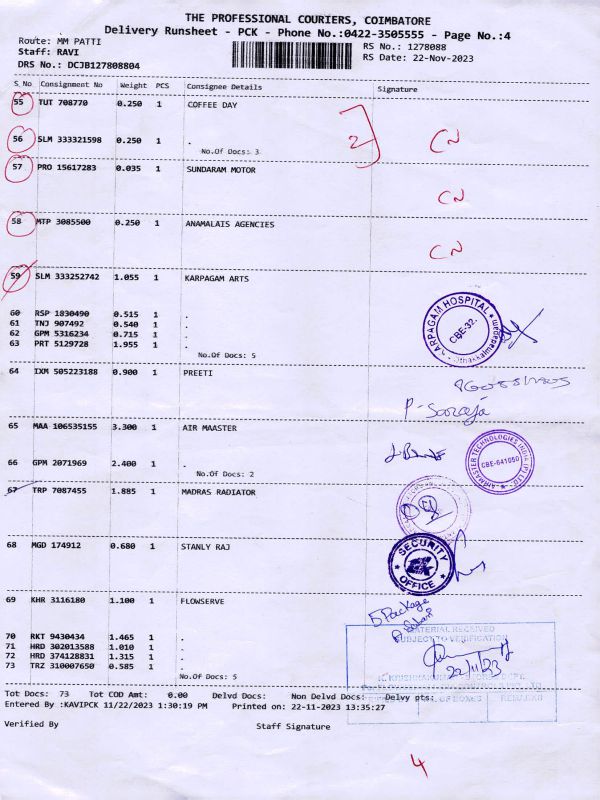 THE PROFESSIONAL COURIERS, COIMBATORE
Delivery Runsheet - PCK - Phone No.:0422-3505555 - Page No.:4
Route: MM PATTI
RS No.: 1278088
Staff: RAVI
RS Date: 22-Nov-2023
DRS No.: DCJB127808804
S.No Consignment No Weight PCS Consignee Details Signature
55 TUT 708770 0.250 1 COFFEE DAY
2
56 SLM 333321598 0.250 1 . CN
No.Of Docs: 3
57 PRO 15617283 0.035 1 SUNDARAM MOTOR
CN
58 MTP 3085500 0.250 1 ANAMALAIS AGENCIES
CN
59 SLM 333252742 1.055 1 KARPAGAM ARTS
KARPAGAM HOSPITAL
CBE-32.
60 RSP 1830490 0.515 1 .
61 TNJ 907492 0.540 1 .
62 GPM 5316234 0.715 1 .
63 PRT 5129728 1.955 1 .
No.Of Docs: 5
64 IXM 505223188 0.900 1 PREETI
P. Saroja
65 MAA 106535155 3.300 1 AIR MAASTER
AIRMASTER TECHNOLOGIES INDIA (P) LTD.
CBE-641050
66 GPM 2071969 2.400 1 .
No.Of Docs: 2
67 TRP 7087455 1.885 1 MADRAS RADIATOR
68 MGD 174912 0.680 1 STANLY RAJ
SECURITY
OFFICE
69 KHR 3116180 1.100 1 FLOWSERVE
5 Package
MATERIAL RECEIVED
SUBJECT TO VERIFICATION
70 RKT 9430434 1.465 1 .
71 HRD 302013588 1.010 1 .
72 HRD 374128831 1.315 1 .
73 TRZ 310007650 0.585 1 .
22/11/23
No.Of Docs: 5
Tot Docs: 73 Tot COD Amt: 0.00 Delvd Docs: Non Delvd Docs: Delvy pts:
Entered By :KAVIPCK 11/22/2023 1:30:19 PM Printed on: 22-11-2023 13:35:27
Verified By Staff Signature
4